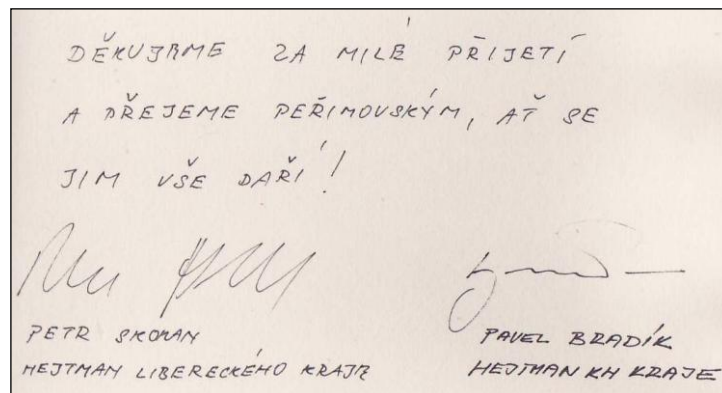 DĚKUJEME ZA MILÉ PŘIJETÍ
A PŘEJEME PEŘIMOVSKÝM, AŤ SE
JIM VŠE DAŘÍ!
PETR SKOKAN
HEJTMAN LIBERECKÉHO KRAJE
PAVEL BRADÍK
HEJTMAN KH KRAJE